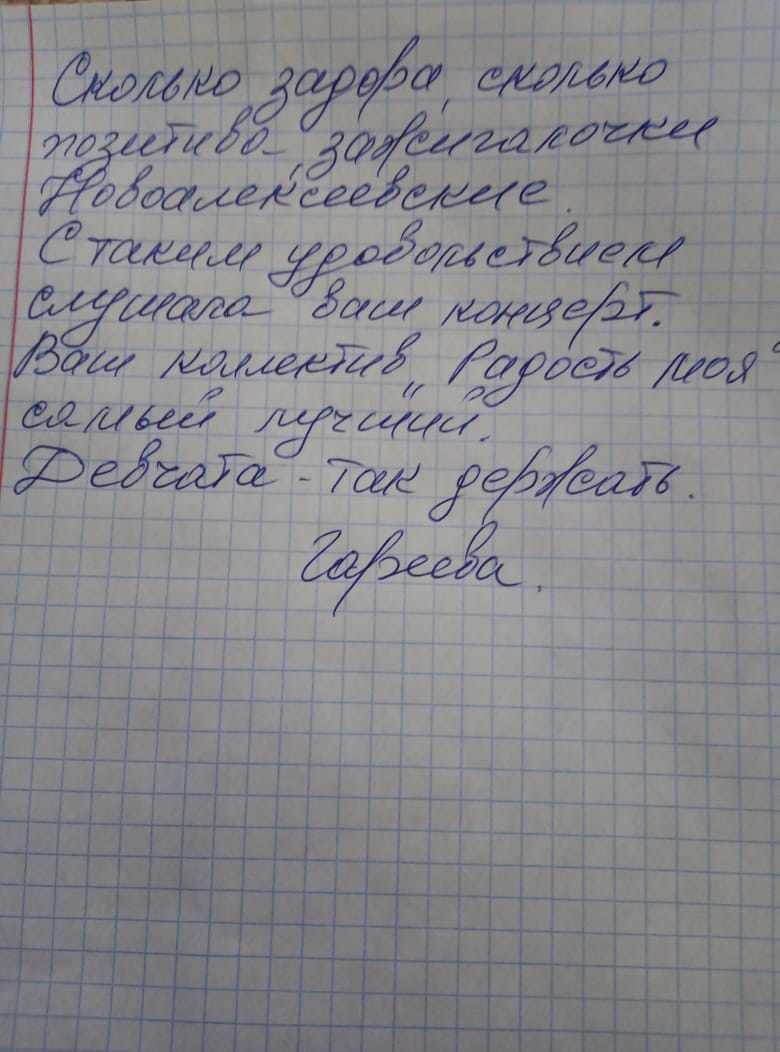 Сколько задора, сколько
позитива, зажигалочки
Новоалексеевские.
С таким удовольствием
слушала ваш концерт.
Ваш коллектив „Радость моя"
самый лучший.
Девчата - так держать.
Гареева.